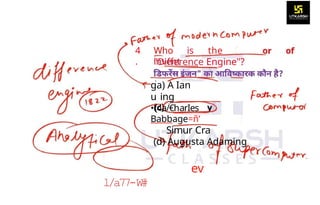 UTKARSH
Father of modern computer
4. Who is the or of
"Difference Engine"?
डिफरेंस इंजन" का आविष्कारक कौन है?
difference
engine
1822
ga) A Ian
u ing
(c) Charles v
Babbage
Father of
Computer
Analytical
Simur Cra
(d) Augusta Adaming
Supercomputer
UTKARSH
CLASSES
ev
1/a77-W#